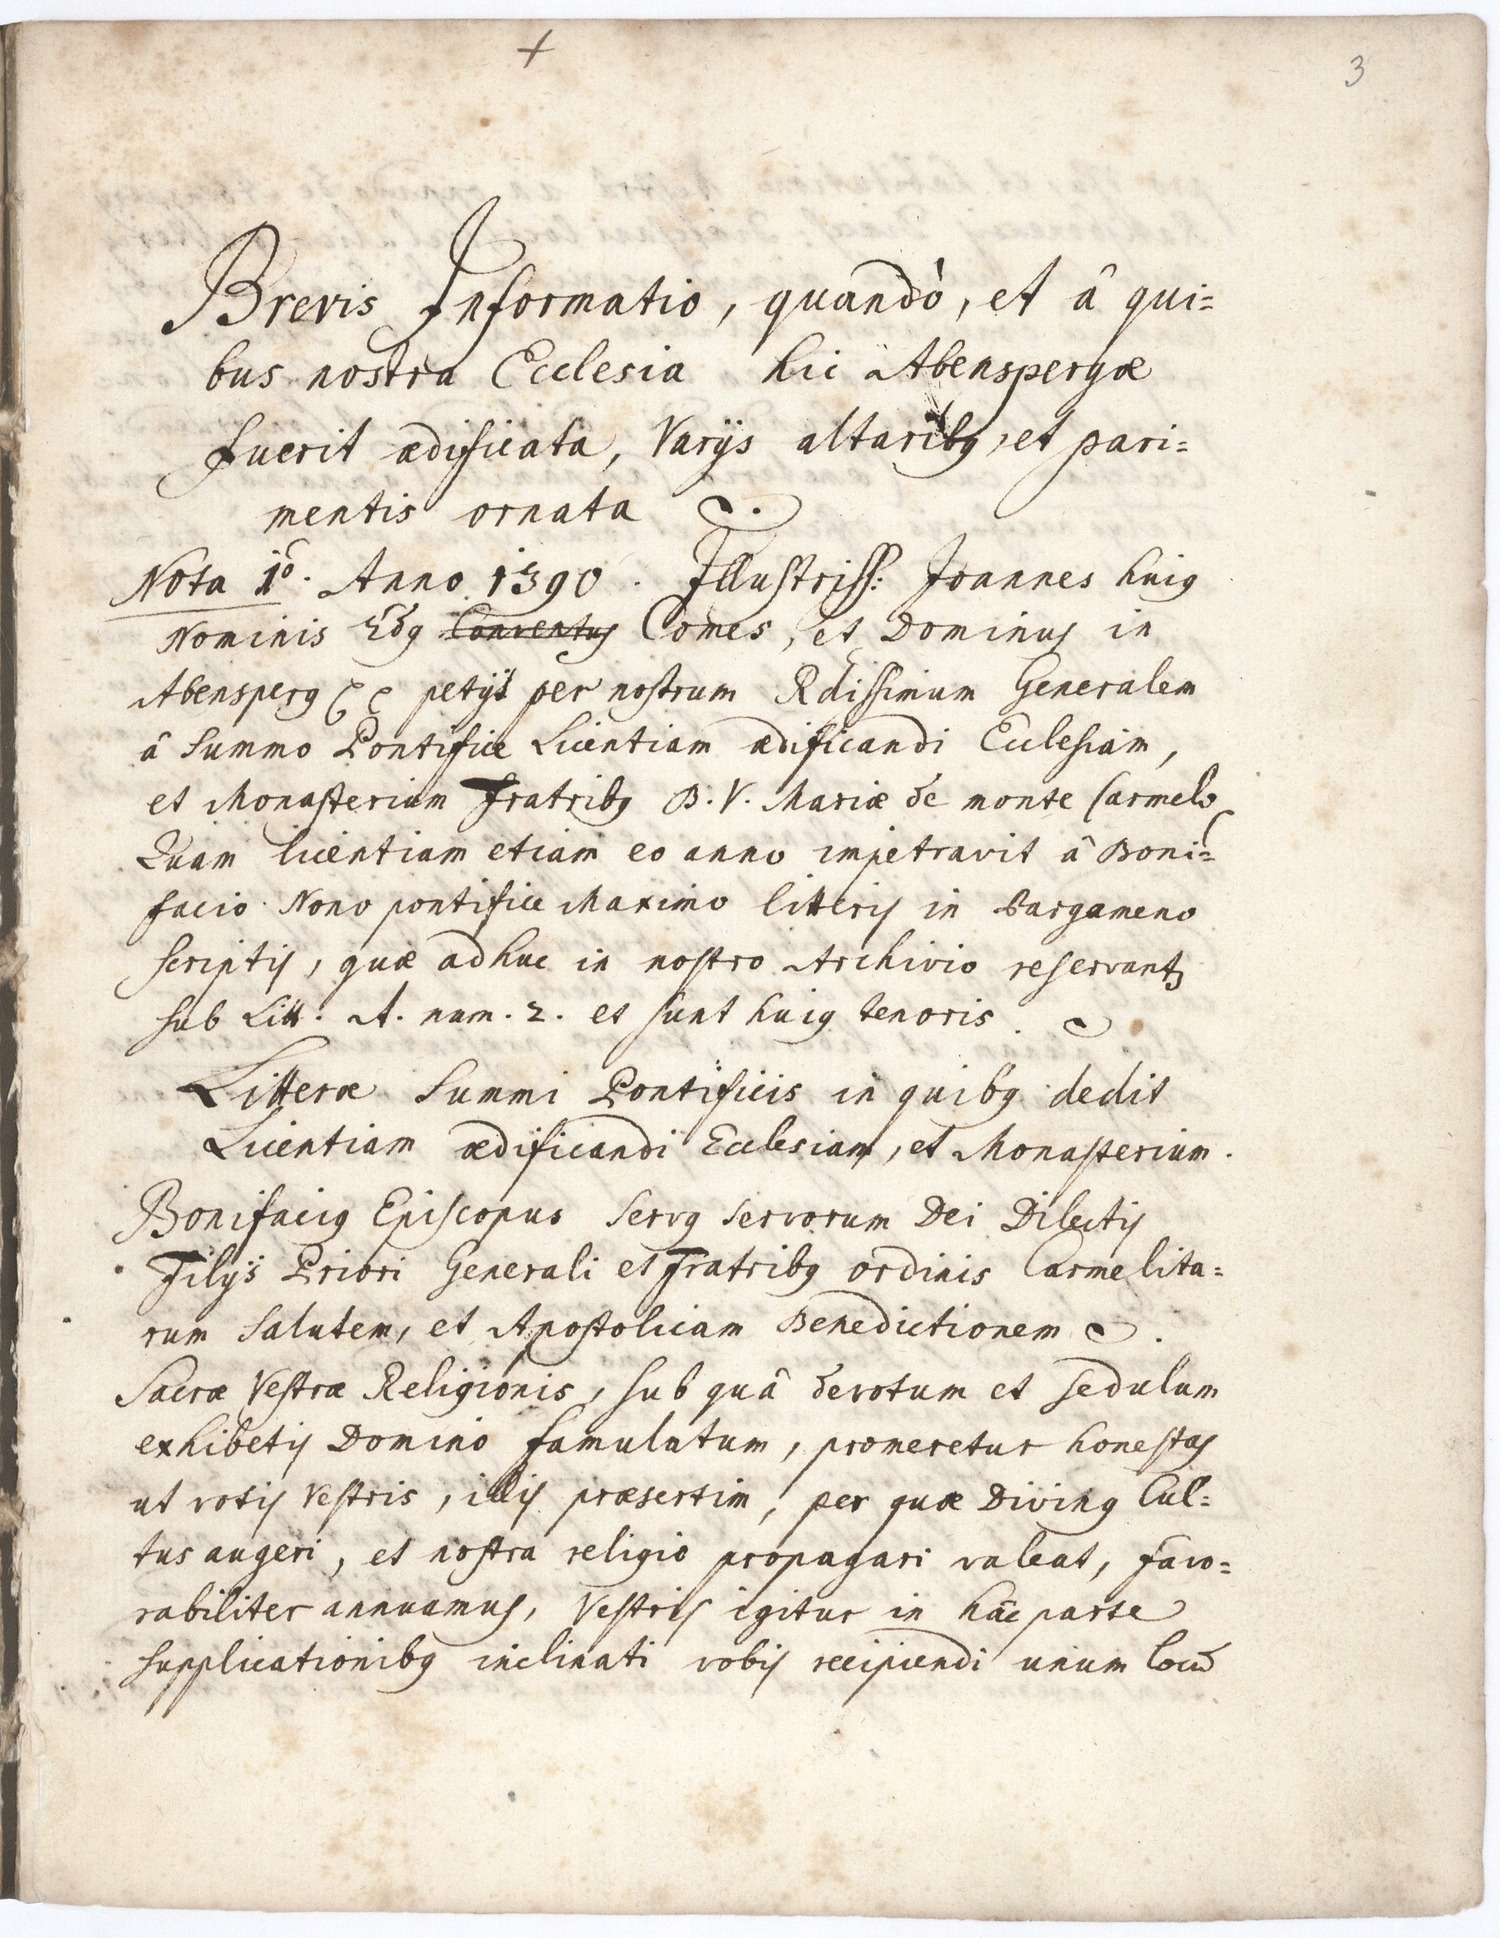 +
3
Brevis Informatio, quandò, et â qui=
bus nostra Ecclesia hic Abenspergæ
fuerit ædificata, Varijs altaribq, et pari=
mentis ornata
Nota 1º. Anno 1390. Illustriss: Joannes huiq
Nominis 2dq Conventus Comes, et Dominus in
Abensperg petijt per nostrum Rdissimum Generalem
â Summo Pontifice Licentiam ædificandi Ecclesiam,
et Monasterium Fratribq B. V. Mariæ de monte Carmelo
Quam licentiam etiam eo anno impetravit â Boni=
facio Nono pontifice Maximo litteris in Pargameno
scriptis, quæ adhuc in nostro Archivio reservantz
sub Litt. A. num. 2. et sunt huiq tenoris.
Litteræ Summi Pontificis in quibq dedit
Licentiam ædificandi Ecclesiam, et Monasterium.
Bonifaciq Episcopus Servq Servorum Dei Dilectis
Filijs Priori Generali et Fratribq ordinis Carmelita=
rum Salutem, et Apostolicam Benedictionem.
Sacræ Vestræ Religionis, sub quâ devotum et sedulum
exhibetis Domino famulatum, promeretur honestas
ut votis Vestris, illis præsertim, per quæ Divinq Cul=
tus augeri, et nostra religio propagari valeat, favo=
rabiliter annuamus, Vestris igitur in hâc parte
supplicationibq inclinati vobis recipiendi unum locū